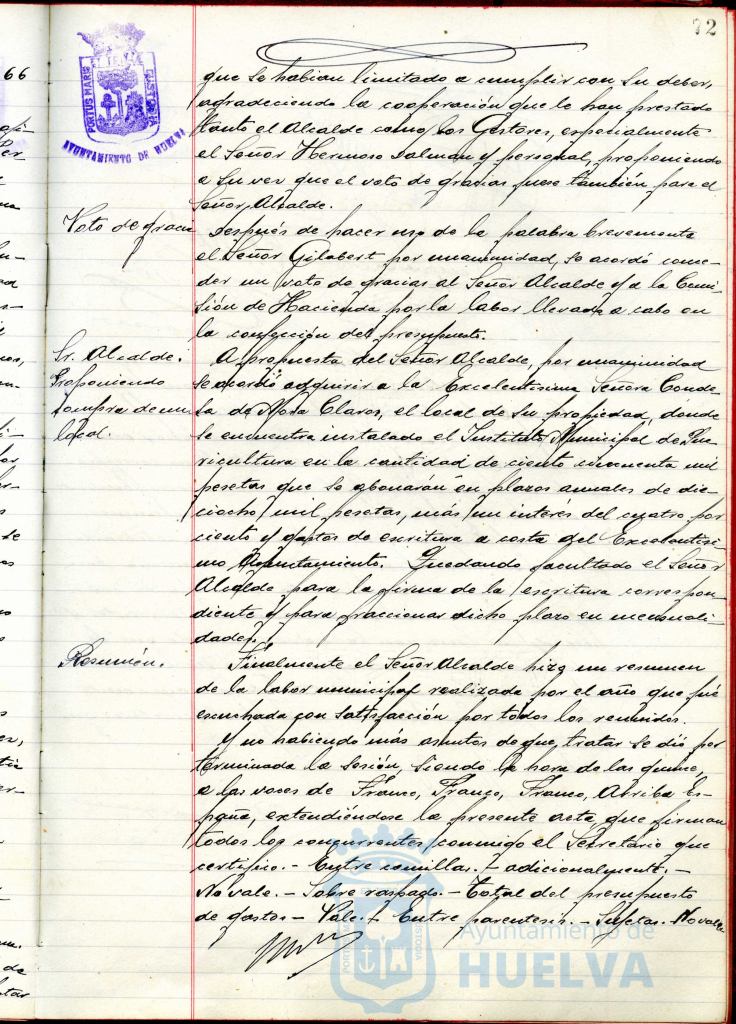 72
66
PORTUS MARIS
ET TERRE
CUSTODIA
AYUNTAMIENTO DE HUELVA
que se habian limitado a cumplir con su deber,
agradeciendo la cooperación que le han prestado
tanto el Alcalde como los Gestores, especialmente
el Señor Hermoso Salman y personal, proponiendo
a su vez que el voto de gracias fuese también para el
Señor Alcalde.
Voto de gracia
Después de hacer uso de la palabra brevemente
el Señor Gilabert por unanimidad, se acordó conce-
der un voto de gracias al Señor Alcalde y a la Comi-
sión de Hacienda por la labor llevada a cabo en
la confección del presupuesto.
Sr. Alcalde.
Proponiendo
compra de un
local.
A propuesta del Señor Alcalde, por unanimidad
se acordó adquirir a la Excelentisima Señora Conde-
sa de Mora Claros, el local de su propiedad, donde
se encuentra instalado el Instituto Municipal de Pue-
ricultura en la cantidad de ciento cincuenta mil
pesetas que se abonarán en plazos anuales de die-
ciocho mil pesetas, más un interés del cuatro por
ciento y gastos de escritura a costa del Excelentisi-
mo Ayuntamiento. Quedando facultado el Señor
Alcalde para la firma de la escritura correspon-
diente y para fraccionar dicho plazo en mensuali-
dades.
Resumén.
Finalmente el Señor Alcalde hizo un resumen
de la labor municipal realizada por el año que fué
escuchada con satisfacción por todos los reunidos.
Y no habiendo más asuntos de que tratar se dió por
terminada la sesión, siendo la hora de las quince,
a las voces de Franco, Franco, Franco, Arriba Es-
paña, extendiéndose la presente acta, que firman
todos los concurrentes conmigo el Secretario que
certifico.- Entre comillas.- adicionalmente.-
No vale.- Sobre raspado.- Total del presupuesto
de gastos - Vale.- Entre parentesis.- Sujetar. No vale
Ayuntamiento de
HUELVA